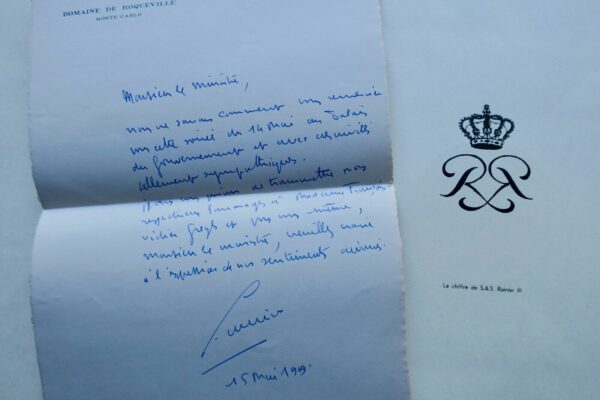 DOMAINE DE ROQUEVILLE
MONTE CARLO
Monsieur le ministre,
nous ne savons comment vous remercier
cette soirée du 14 Mai au Palais
du gouvernement et avec convives
tellement sympathiques.
de transmettre nos
respectueux hommages à Madame
et vous même,
monsieur le ministre, veuillez croire
à l'expression de nos sentiments
15 Mai
RR
Le chiffre de S.A.S. Rainier III